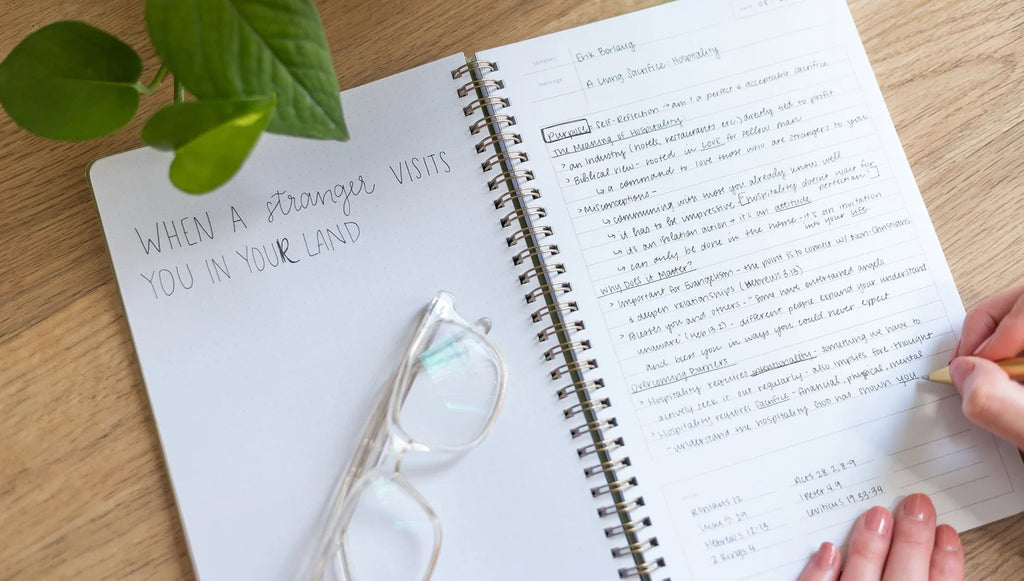 WHEN A stranger VISITS
YOU IN YOUR LAND
Erik Borlaug
message
A Living Sacrifice: Hospitality
Purpose: Self-Reflection → am I a perfect & acceptable sacrifice
The Meaning of Hospitality:
> an industry (hotels, restaurants etc.) directly tied to profit
> Biblical view - rooted in LOVE for fellow man
↳ a command to love those who are strangers to you
> Misconceptions -
↳ communing with those you already know well
↳ it has to be impressive [hospitality doesn't wait for
↳ it's an isolation action → it's an attitude perfection"]
↳ can only be done in the home - it's an invitation
into your life
Why Does it Matter?
> Important for Evangelism - the point is to connect w/ Non-Christians
& deepen relationships (Hebrews 3:13)
> Blesses you and others - "some have entertained angels
unaware" (Heb 13:2) - different people expand your understand
and bless you in ways you could never expect
Overcoming Barriers
> Hospitality requires intentionality - something we have to
actively seek it out regularly - also implies fore-thought
> Hospitality requires sacrifice - financial, physical, mental
- understand the hospitality God has shown you
Romans 12
Luke 5:29
Hebrews 12-13
2 Kings 4
Acts 28, 2, 8-9
1 Peter 4:9
Leviticus 19:33-34